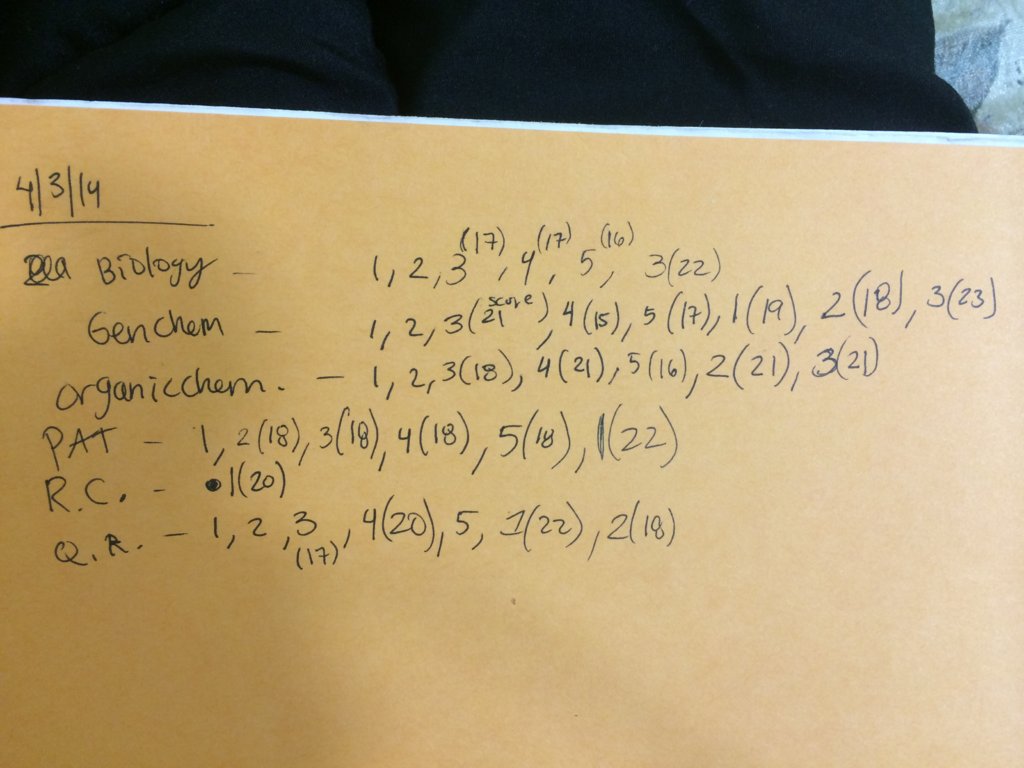 4/3/14
Biology - 1, 2, 3(17), 4(17), 5(16), 3(22)
Genchem - 1, 2, 3(21 score), 4(15), 5(17), 1(19), 2(18), 3(23)
organicchem. - 1, 2, 3(18), 4(21), 5(16), 2(21), 3(21)
PAT - 1, 2(18), 3(18), 4(18), 5(18), 1(22)
R.C. - 1(20)
Q.R. - 1, 2, 3(17), 4(20), 5, 1(22), 2(18)